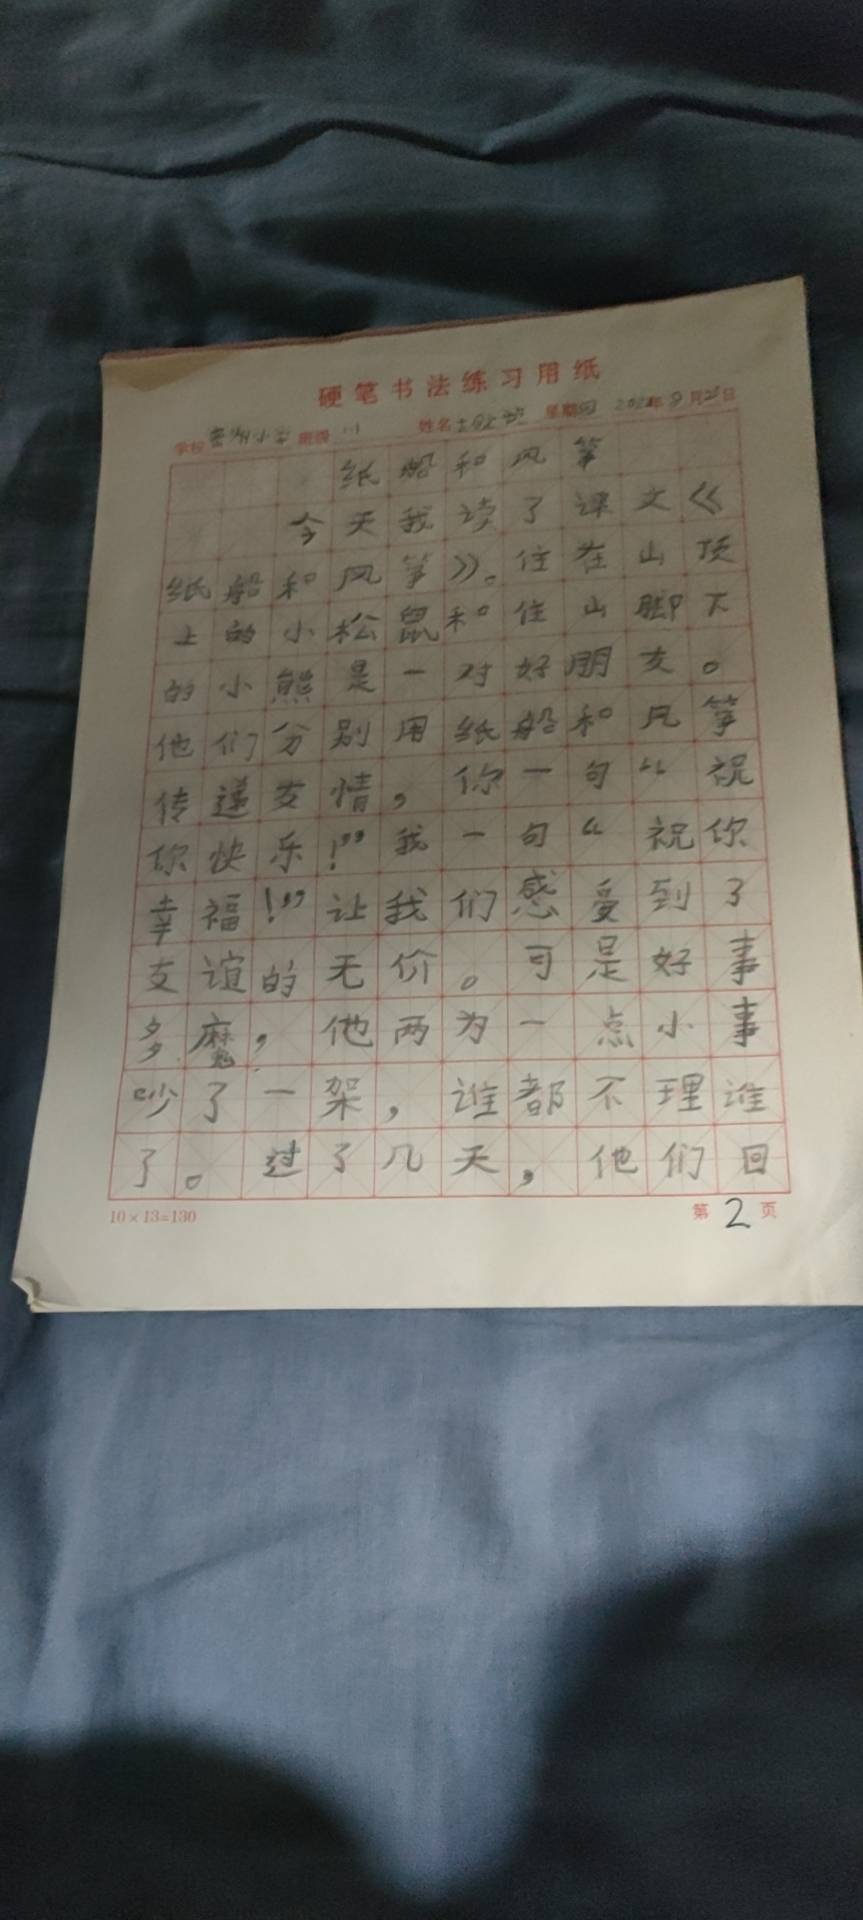 硬笔书法练习用纸
学校 小学 班级 姓名 星期四 年9月 日
纸船和风筝
今天我读了课文《
纸船和风筝》。住在山顶
上的小松鼠和住山脚下
的小熊是一对好朋友。
他们分别用纸船和风筝
传递友情，你一句“祝
你快乐！”我一句“祝你
幸福！”让我们感受到了
友谊的无价。可是好事
多魔，他两为一点小事
吵了一架，谁都不理谁
了。过了几天，他们回
10×13=130 第2页